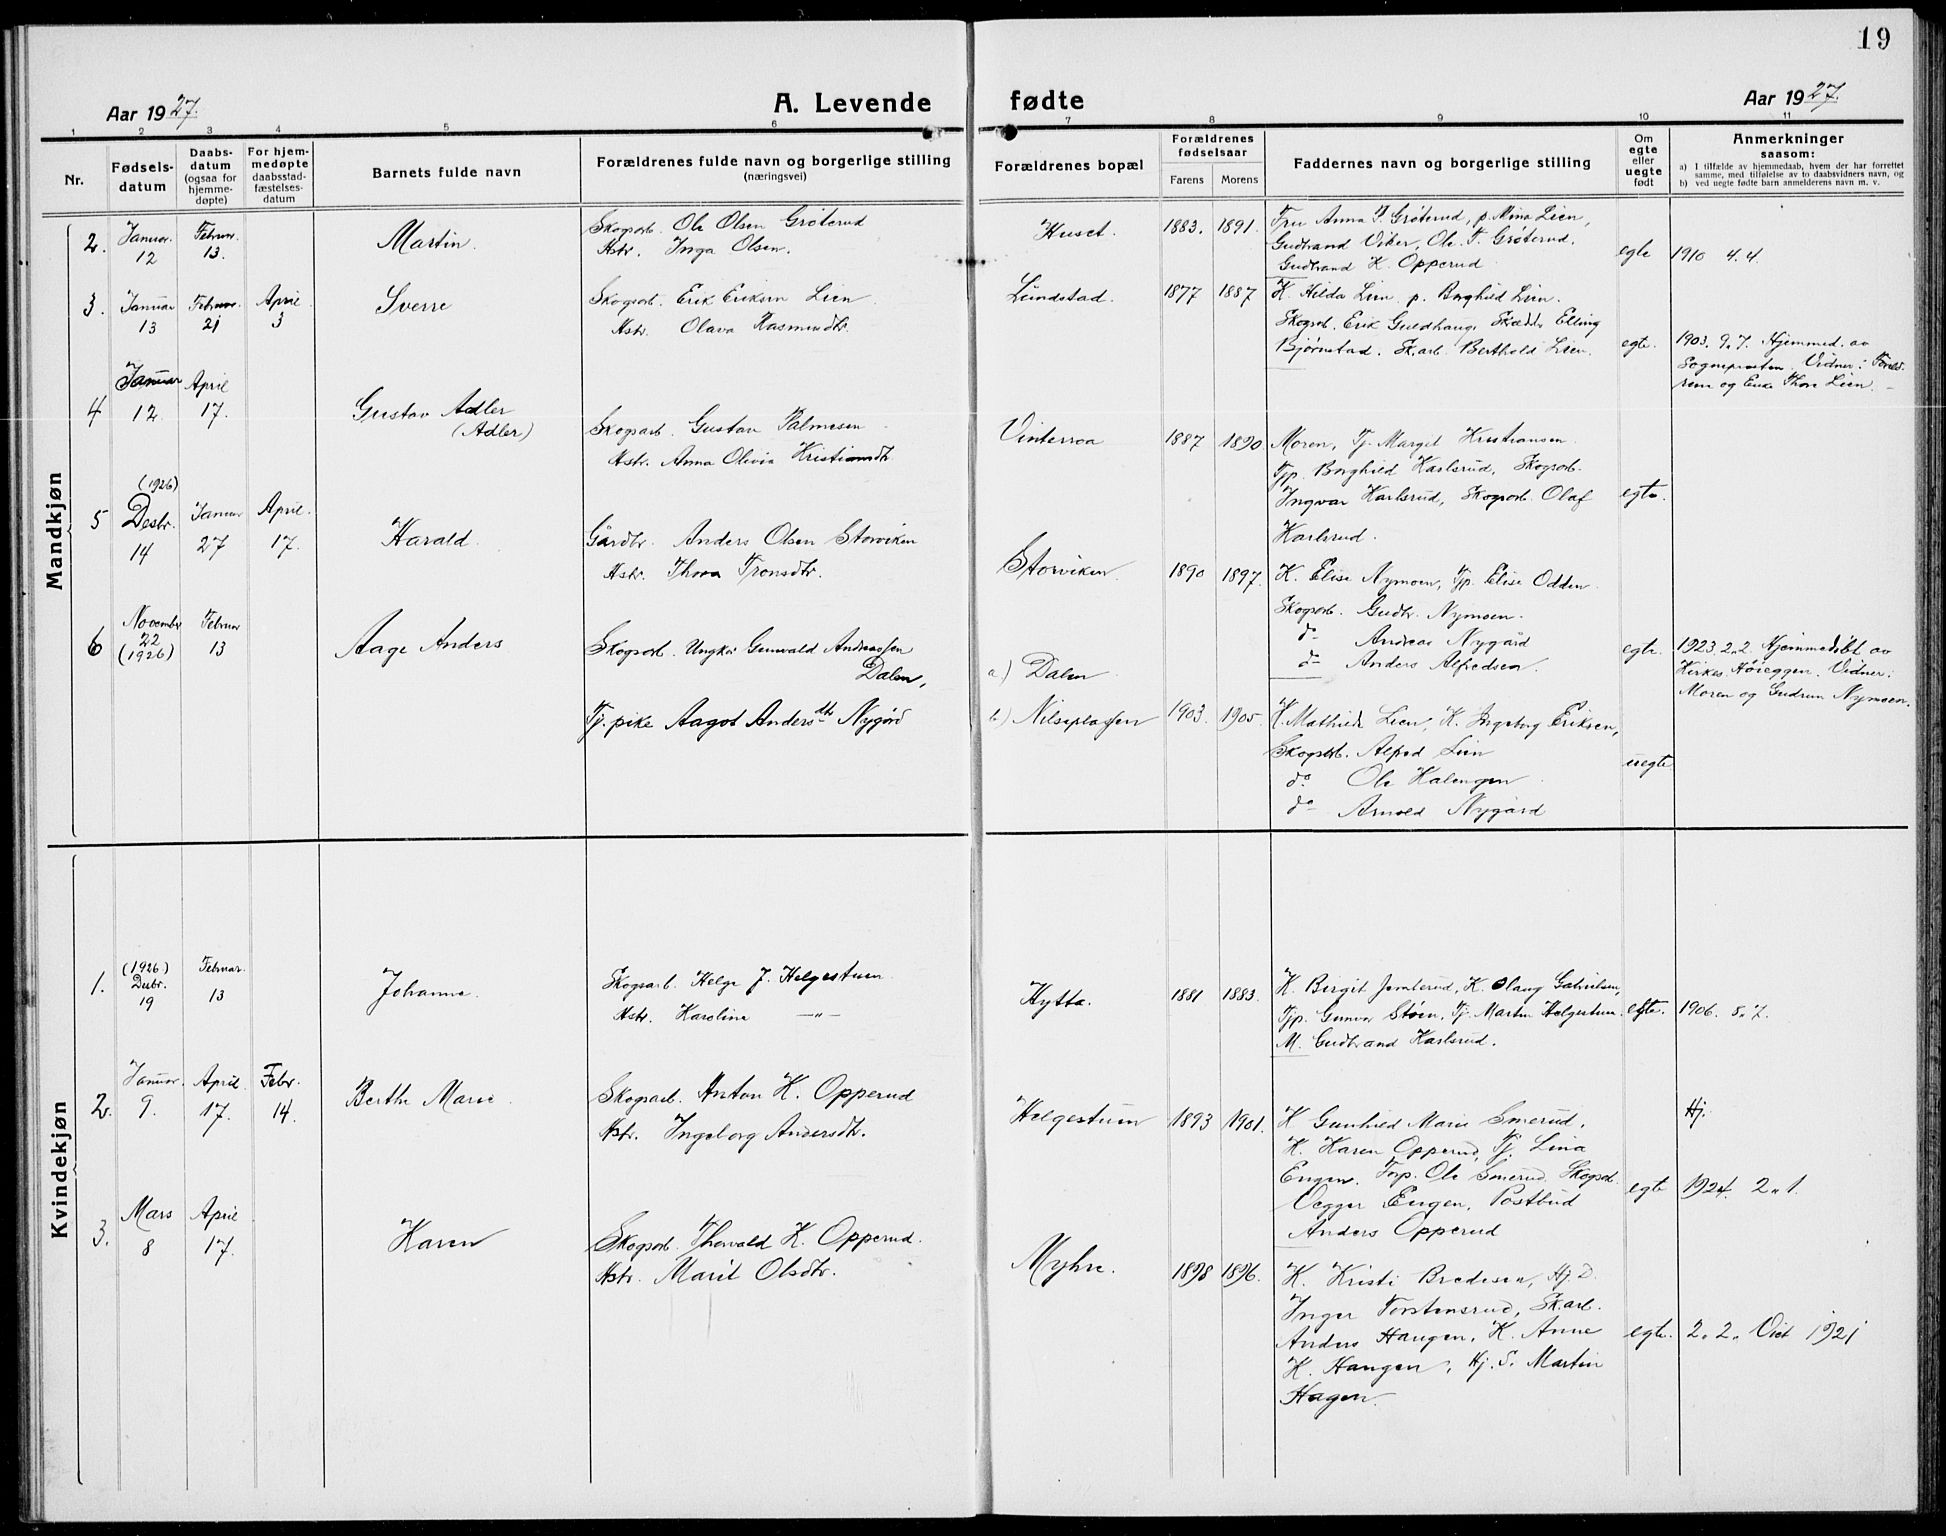 19
Aar 1927.
A. Levende fødte
Aar 1927.
1 2 3 4 5 6 7 8 9 10 11
Nr.
Fødsels-
datum
Daabs-
datum
(ogsaa for
hjemme-
døpte)
For hjem-
medøpte
daabsstad-
fæstelses-
datum
Barnets fulde navn
Forældrenes fulde navn og borgerlige stilling
(næringsvei)
Forældrenes bopæl
Forældrenes
fødselsaar
Farens Morens
Faddernes navn og borgerlige stilling
Om
egte
eller
uegte
født
Anmerkninger
saasom:
a) I tilfælde av hjemmedaab, hvem der har forrettet
samme, med tilføielse av to daabsvidners navn, og
b) ved uegte fødte barn anmelderens navn m. v.
Mandkjøn
2. Januar. 12 Februar. 13. Martin.
Skogsarb. Ole Olsen Grøterud
Hstr. Inga Olsen.
Huset. 1883. 1891.
Fru Anna P. Grøterud, p. Mina Lien,
Gudbrand Viker, Ole P. Grøterud,
Gudbrand K. Opperud
egte 1910 4. 4.
3. Januar 13 Februar 21 April 3 Sverre
Skogsarb. Erik Eriksen Lien
Hstr. Olava Rasmusdtr.
Lundstad. 1877 1887
K. Hilda Lien, p. Borghild Lien.
Skogsarb. Erik Guldhaug, Skrædder Elling
Bjørnstad. Sk.arb. Berthold Lien.
egte.
1903. 9. 7. Hjemmed. av
Sognepresten. Vidner: Foræld-
rene og Enke Thore Lien.
4 Januar 12. April 17. Gustav Adler
(Adler)
Skogsarb. Gustav Palmesen
Hstr. Anna Olivia Kristiansdtr.
Vinterroa 1887 1890.
Moren, Tj. Margit Kristiansen.
Tjp. Borghild Karlsrud, Skogsarb.
Ingvar Karlsrud, Skogsarb. Olaf
Karlsrud.
egte.
5 (1926) Desbr. 14 Januar 27 April. 17. Harald.
Gårdbr. Anders Olsen Storviken
Hstr. Thora Tronsdtr.
Storviken. 1890 1897.
K. Elise Nymoen, Tjp. Elise Odden
Skogsarb. Gudbr. Nymoen.
do Andreas Nygård
do Anders Alfredsen.
egte.
1923. 2. 2. Hjemmedøbt av
Kirkes. Høieggen. Vidner:
Moren og Gudrun Nymoen.
6 November 22 (1926) Februar 13 Aage Anders
Skogsarb. Ungkar Gunvald Andreassen
Dalen,
Tj. pike Aagot Andersdtr Nygård
a) Dalen
b) Nilseplassen 1903. 1905.
K. Mathilde Lien, K. Ingeborg Eriksen,
Skogsarb. Alfred Lien
do. Ole Kalengen
do Arnold Nygård
uegte
Kvindekjøn
1. (1926) Desbr. 19 Februar. 13 Johanne.
Skogsarb. Helge J. Helgestuen
Hstr. Karoline —"—
Hytta. 1881 1883.
K. Birgit Jemterud, K. Olaug Gabrielsen,
Tjp. Gunvor Støen, Tj. Martin Helgestuen.
M. Gudbrand Karlsrud.
egte. 1906. 8. 7.
2. Januar. 9. April 17. Febr. 14. Berthe Marie.
Skogsarb. Anton K. Opperud
Hstr. Ingeborg Andersdtr.
Helgestuen 1893 1901.
K. Gunhild Marie Smerud,
K. Karen Opperud, Tj. Lina
Engen. Forp. Ole Smerud, Skogsarb.
Vegger Engen, Postbud
Anders Opperud
egte
Hj.
1924. 2. 1.
3. Mars 8 April 17. Karen
Skogsarb. Thorvald K. Opperud.
Hstr. Marit Olsdtr.
Myhre. 1898 1896.
K. Kristi Bredesen, Hj. D.
Inger Torstensrud, Sk.arb.
Anders Haugen, K. Anne
K. Haugen, Hj. S. Martin
Hagen.
egte. 2. 2. Viet 1921